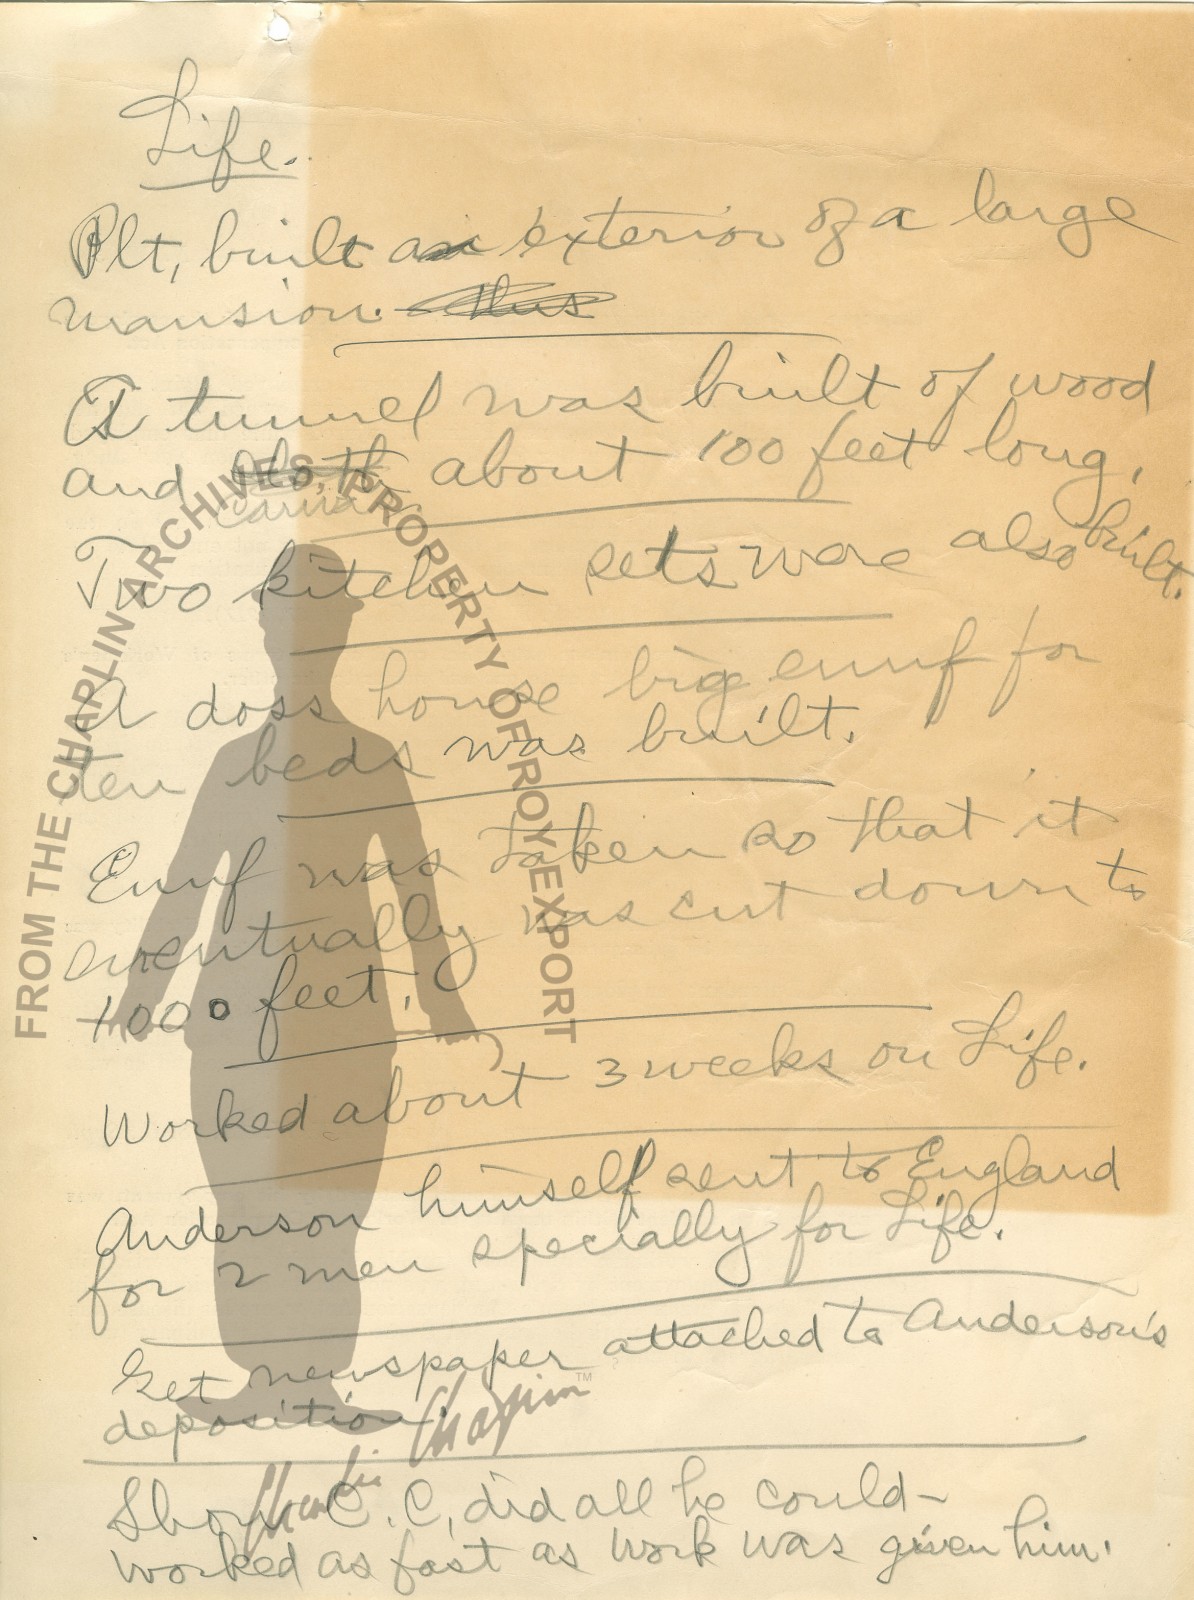 Life.
Plt, built an exterior of a large
mansion. thus
A tunnel was built of wood
and about 100 feet long.
canvas
Two kitchen sets were also built.
A doss house big enuf for
ten beds was built.
Enuf was taken so that it
eventually was cut down to
1000 feet.
Worked about 3 weeks on Life.
Anderson himself sent to England
for 2 men specially for Life.
Get newspaper attached to Anderson's
deposition.
Show C.C. did all he could-
worked as fast as work was given him.
FROM THE CHAPLIN ARCHIVES, PROPERTY OF ROY EXPORT
Charlie Chaplin™